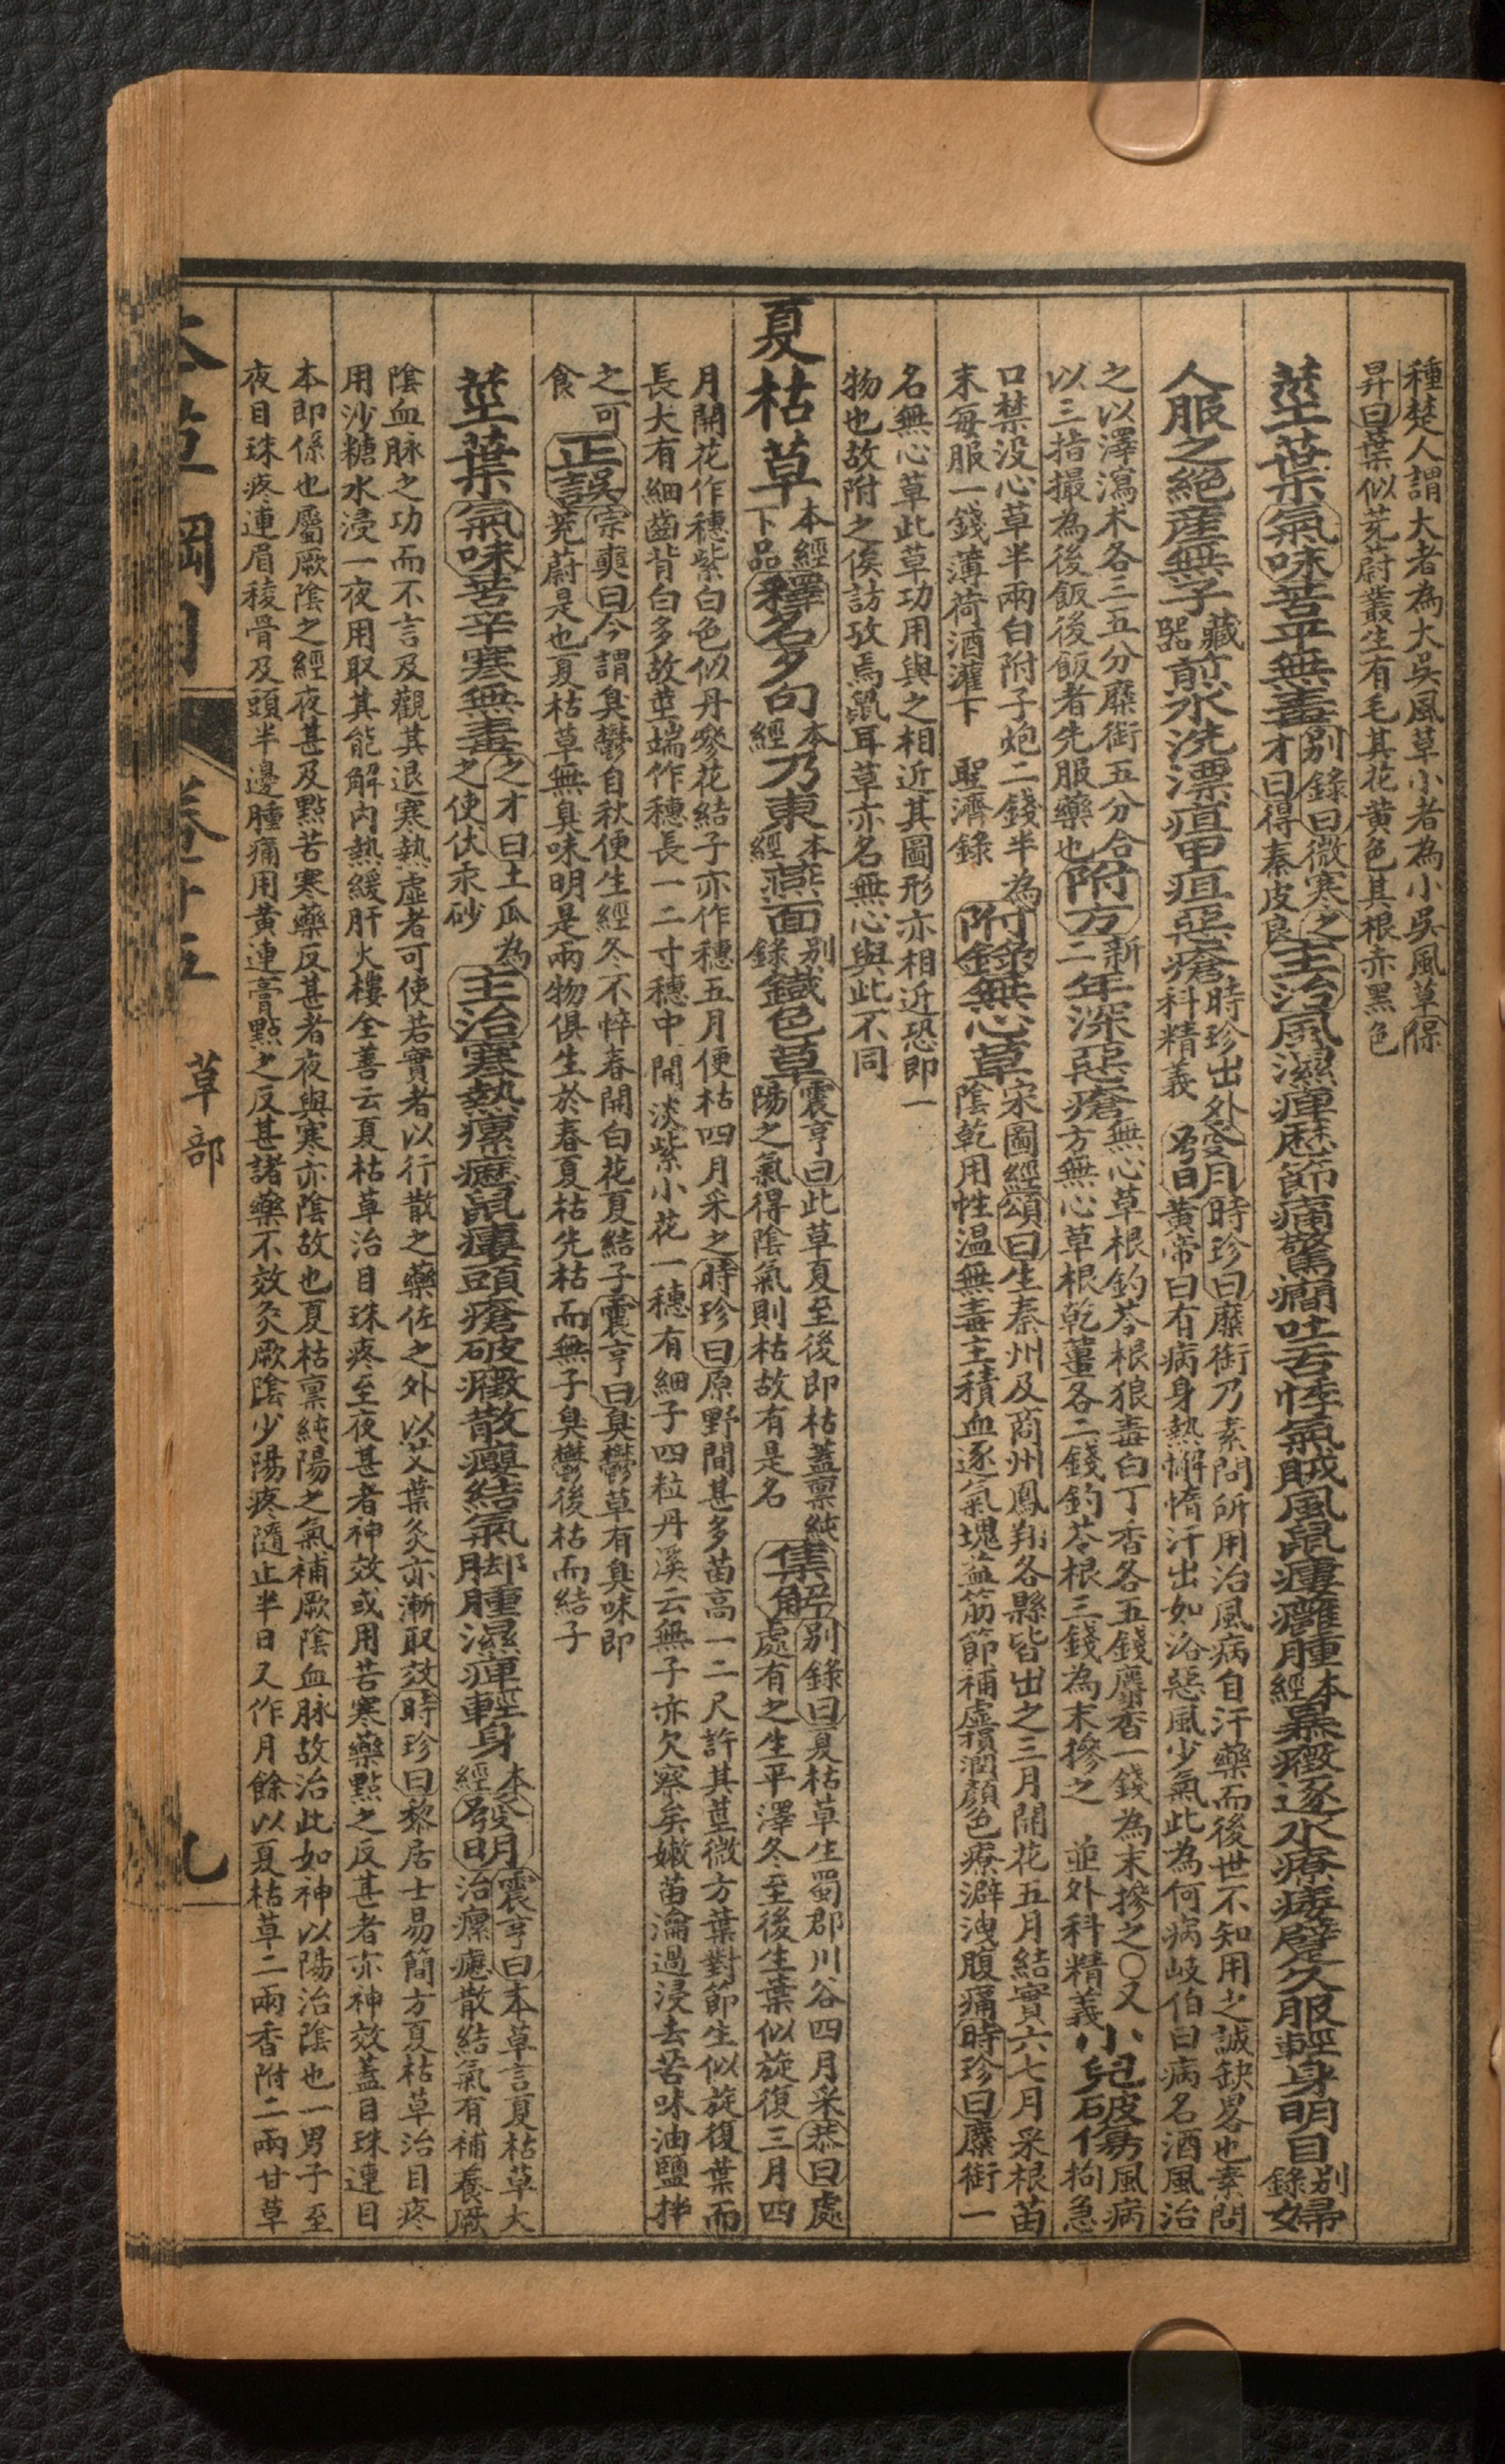 種楚人謂大者為大吳風草小者為小吳風草保
昇曰葉似茺蔚叢生有毛其花黃色其根赤黑色
莖葉氣味苦平無毒別錄曰微寒之才曰得秦皮良主治風濕痺歷節痛驚癇吐舌悸氣賊風鼠瘻癰腫本經暴癥逐水療痿躄久服輕身明目別錄婦
人服之絕產無子藏器煎水洗瘭疽甲疽惡瘡時珍出外科精義發明時珍曰薇銜乃素問所用治風病自汗藥而後世不知用之誠缺畧也素問黃帝曰有病身熱懈惰汗出如浴惡風少氣此為何病岐伯曰病名酒風治
之以澤瀉朮各三五分麋銜五分合以三指撮為後飯後飯者先服藥也附方新二年深惡瘡無心草根釣苓根狼毒白丁香各五錢麝香一錢為末摻之〇又方無心草根乾薑各二錢釣苓根三錢為末摻之 並外科精義小兒破傷風病拘急
口禁没心草半兩白附子炮二錢半為末每服一錢薄荷酒灌下 聖濟錄附錄無心草宋圖經頌曰生秦州及商州鳳翔各縣皆出之三月開花五月結實六七月采根苗陰乾用性溫無毒主積血逐氣塊益筋節補虛損潤顏色療澼洩腹痛時珍曰麋銜一
名無心草此草功用與之相近其圖形亦相近恐即一
物也故附之俟訪攷焉鼠耳草亦名無心與此不同
夏枯草本經下品釋名夕句本經乃東本經燕面別錄鐵色草震亨曰此草夏至後即枯蓋禀純陽之氣得陰氣則枯故有是名集解別錄曰夏枯草生蜀郡川谷四月采恭曰處處有之生平澤冬至後生葉似旋復三月四
月開花作穗紫白色似丹參花結子亦作穗五月便枯四月采之時珍曰原野間甚多苗高一二尺許其莖微方葉對節生似旋復葉而
長大有細齒背白多故莖端作穗長一二寸穗中開淡紫小花一穗有細子四粒丹溪云無子亦欠察矣嫩苗瀹過浸去苦味油鹽拌
之可食正誤宗奭曰今謂臭鬱自秋便生經冬不悴春開白花夏結子震亨曰臭鬱草有臭味即茺蔚是也夏枯草無臭味明是兩物俱生於春夏枯先枯而無子臭鬱後枯而結子
莖葉氣味苦辛寒無毒之才曰土瓜為之使伏汞砂主治寒熱瘰癧鼠瘻頭瘡破癥散癭結氣脚腫濕痺輕身本經發明震亨曰本草言夏枯草大治瘰癧散結氣有補養厥
陰血脉之功而不言及觀其退寒熱虛者可使若實者以行散之藥佐之外以艾葉灸亦漸取效時珍曰黎居士易簡方夏枯草治目疼
用沙糖水浸一夜用取其能解內熱緩肝火樓全善云夏枯草治目珠疼至夜甚者神效或用苦寒藥點之反甚者亦神效蓋目珠連目
本即係也屬厥陰之經夜甚及點苦寒藥反甚者夜與寒亦陰故也夏枯禀純陽之氣補厥陰血脉故治此如神以陽治陰也一男子至
夜目珠疼連眉稜骨及頭半邊腫痛用黃連膏點之反甚諸藥不效灸厥陰少陽疼隨止半日又作月餘以夏枯草二兩香附二兩甘草
本草綱目 卷十五 草部 九